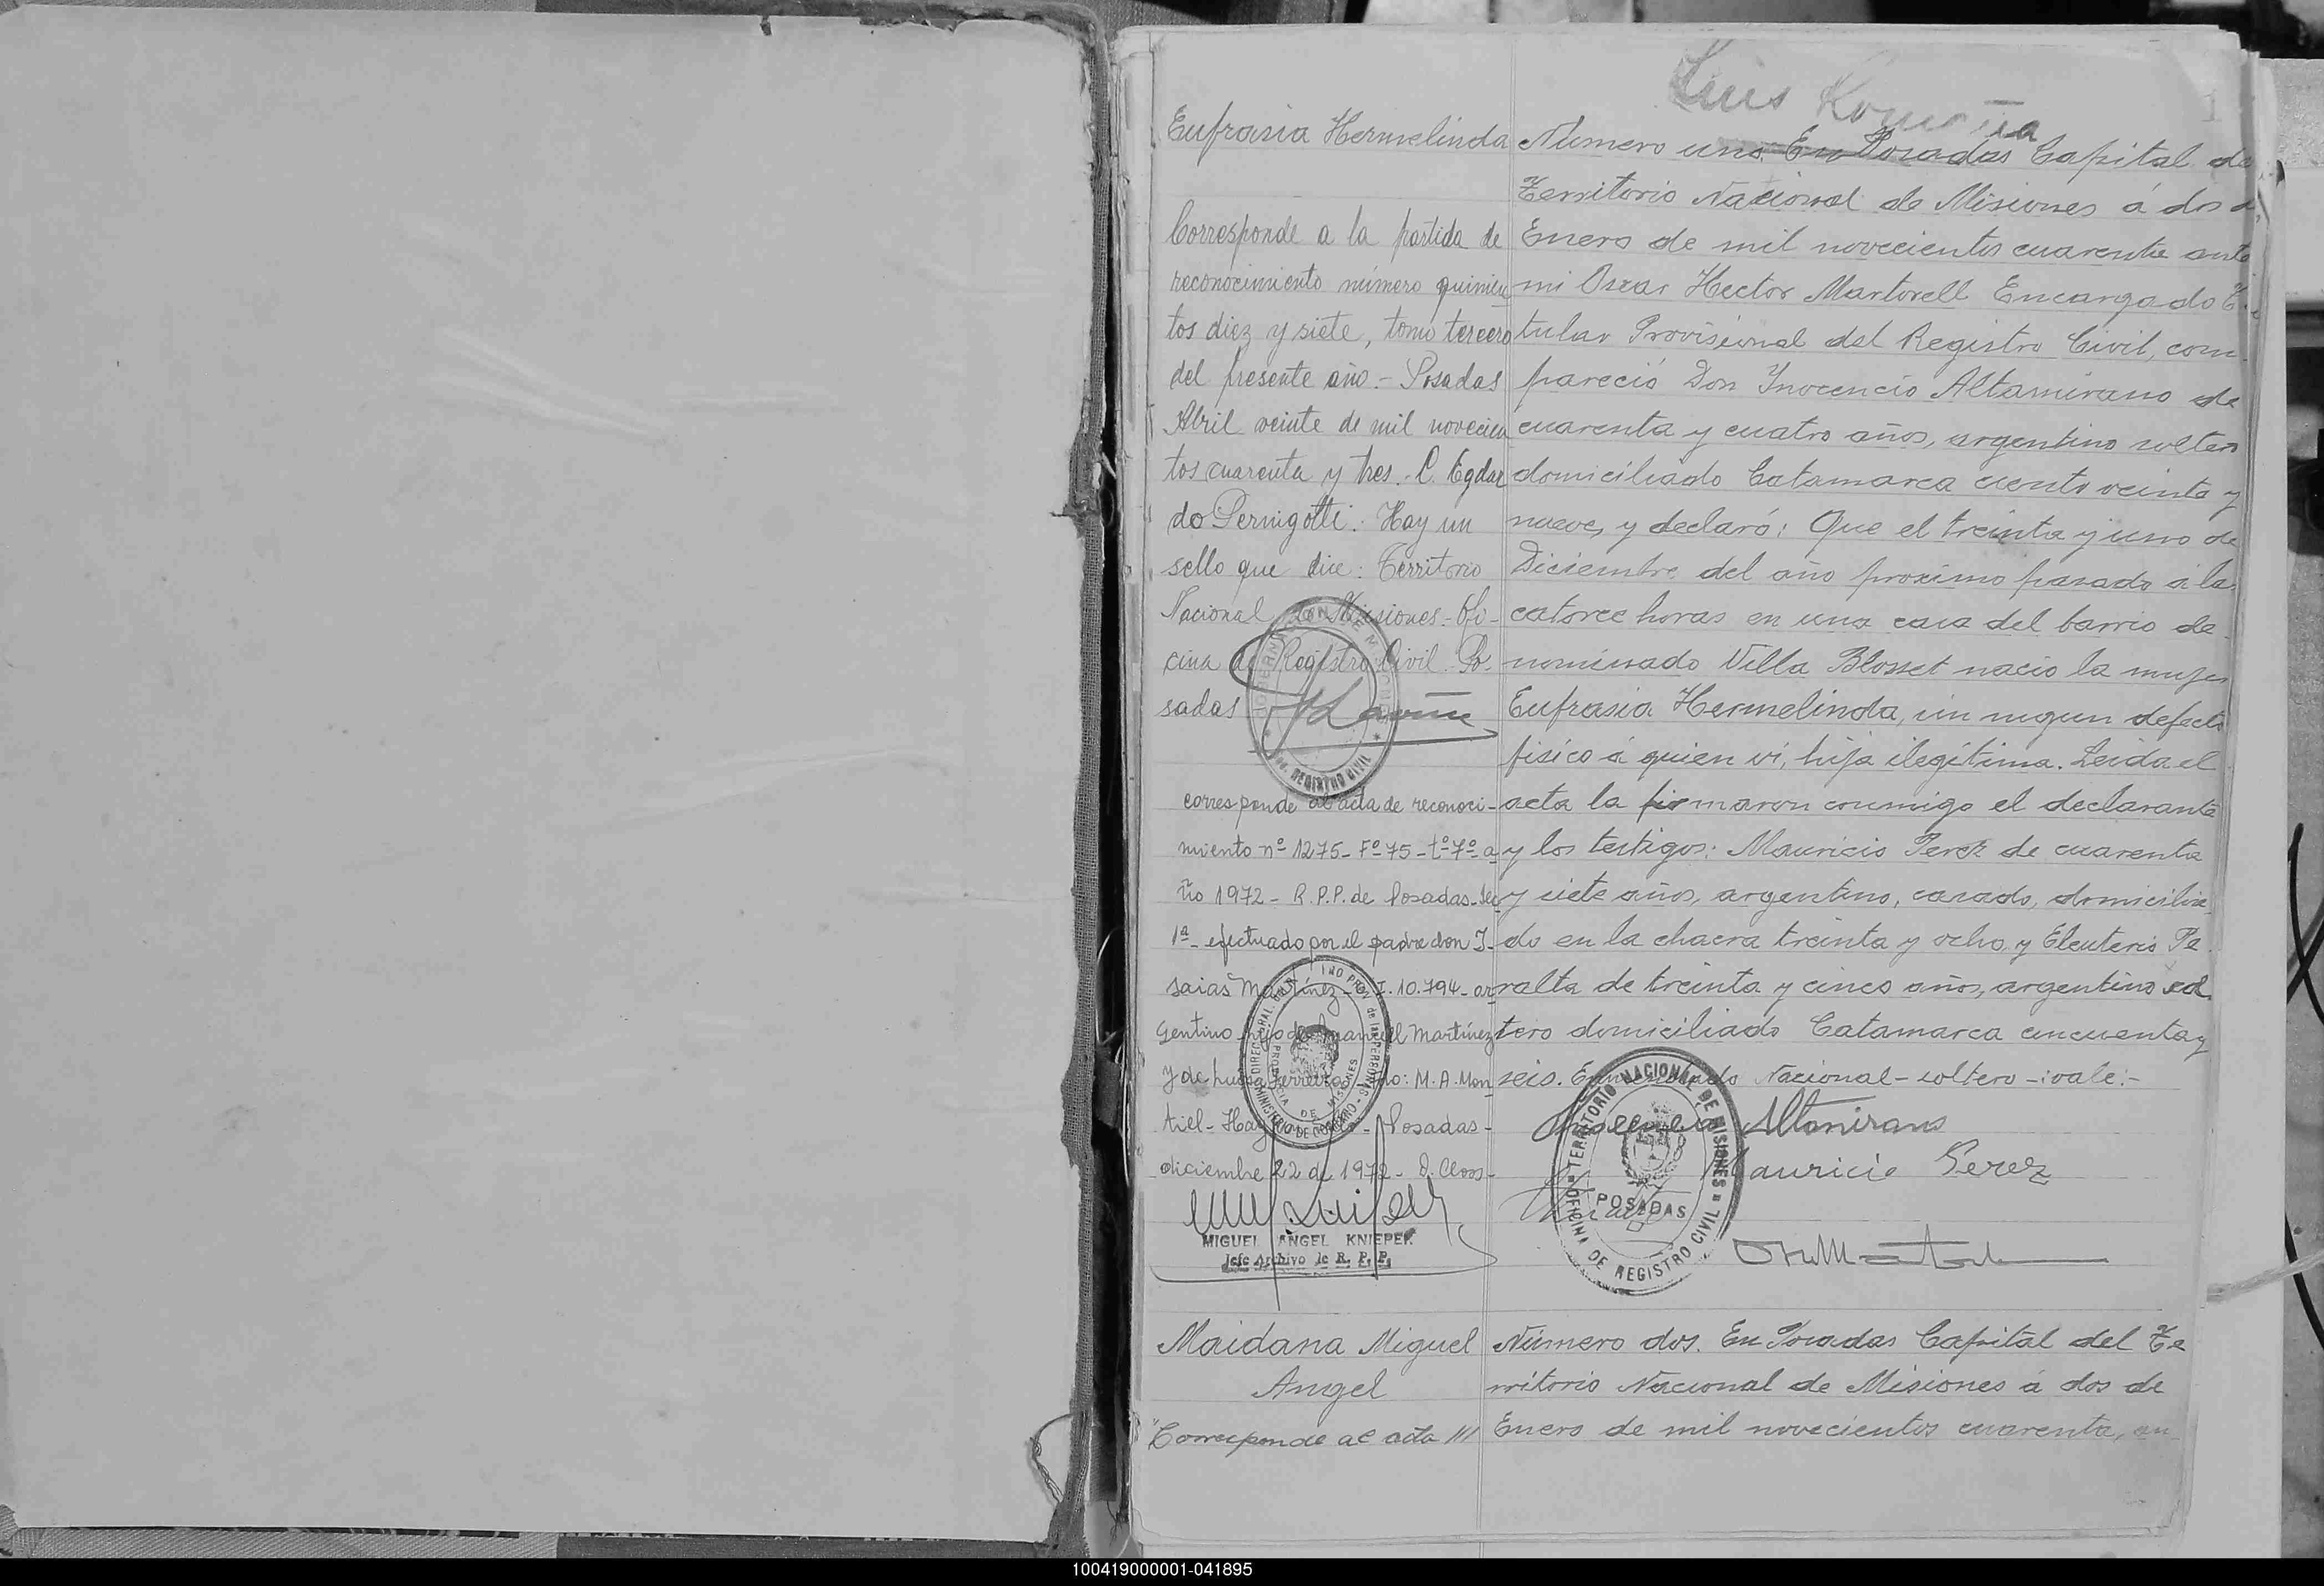 Luis
Eufrasia Hermelinda
Corresponde a la partida de
reconocimiento número quinien
tos diez y siete, tomo tercero
del presente año.- Posadas
Abril veinte de mil novecien
tos cuarenta y tres.- C. Egdar
do Pernigotti.- Hay un
sello que dice: Territorio
Nacional de Misiones.- Ofi-
cina de Registro Civil. Po-
sadas
GOBERNACION DE MISIONES
REGISTRO CIVIL
corresponde al acta de reconoci-
miento nº 1275- Fº 75- tº 7º- a
ño 1972- R.P.P. de Posadas- Sec
1ª- efectuado por el padre don I-
saias Martínez- I. 10.794- ar
gentino- hijo de Manuel Martínez
y de Luisa Ferreira- do: M.A. Mon
tiel- Hay - Posadas-
diciembre 22 de 1972- D. Closs-
MIGUEL ANGEL KNIEPER
Jefe Archivo de R. P. P.
Número uno. En Posadas Capital de
Territorio Nacional de Misiones á dos d
Enero de mil novecientos cuarenta ante
mi Oscar Hector Martorell Encargado Ti
tular Provisional del Registro Civil, com
pareció Don Inocencio Altamirano de
cuarenta y cuatro años, argentino soltero
domiciliado Catamarca ciento veinte y
nueve, y declaró: Que el treinta y uno de
Diciembre del año proximo pasado á las
catorce horas en una casa del barrio de-
nominado Villa Blosset nacio la mujer
Eufrasia Hermelinda, sin nigun defecto
fisico á quien vi, hija ilegítima. Leida el
acta la firmaron conmigo el declarante
y los testigos: Mauricio Perez de cuarenta
y siete años, argentino, casado, domicilia
do en la chacra treinta y ocho, y Eleuterio Pe
ralta de treinta y cinco años, argentino sol
tero domiciliado Catamarca cincuenta y
seis. Enmendado Nacional- soltero -: vale:-
Inocencio Altamirano
Mauricio Perez
TERRITORIO NACIONAL DE MISIONES
POSADAS
OFICINA DE REGISTRO CIVIL
Maidana Miguel
Angel
"Corresponde al acta
Número dos. En Posadas Capital del Te
rritorio Nacional de Misiones á dos de
Enero de mil novecientos cuarenta, an
100419000001-041895